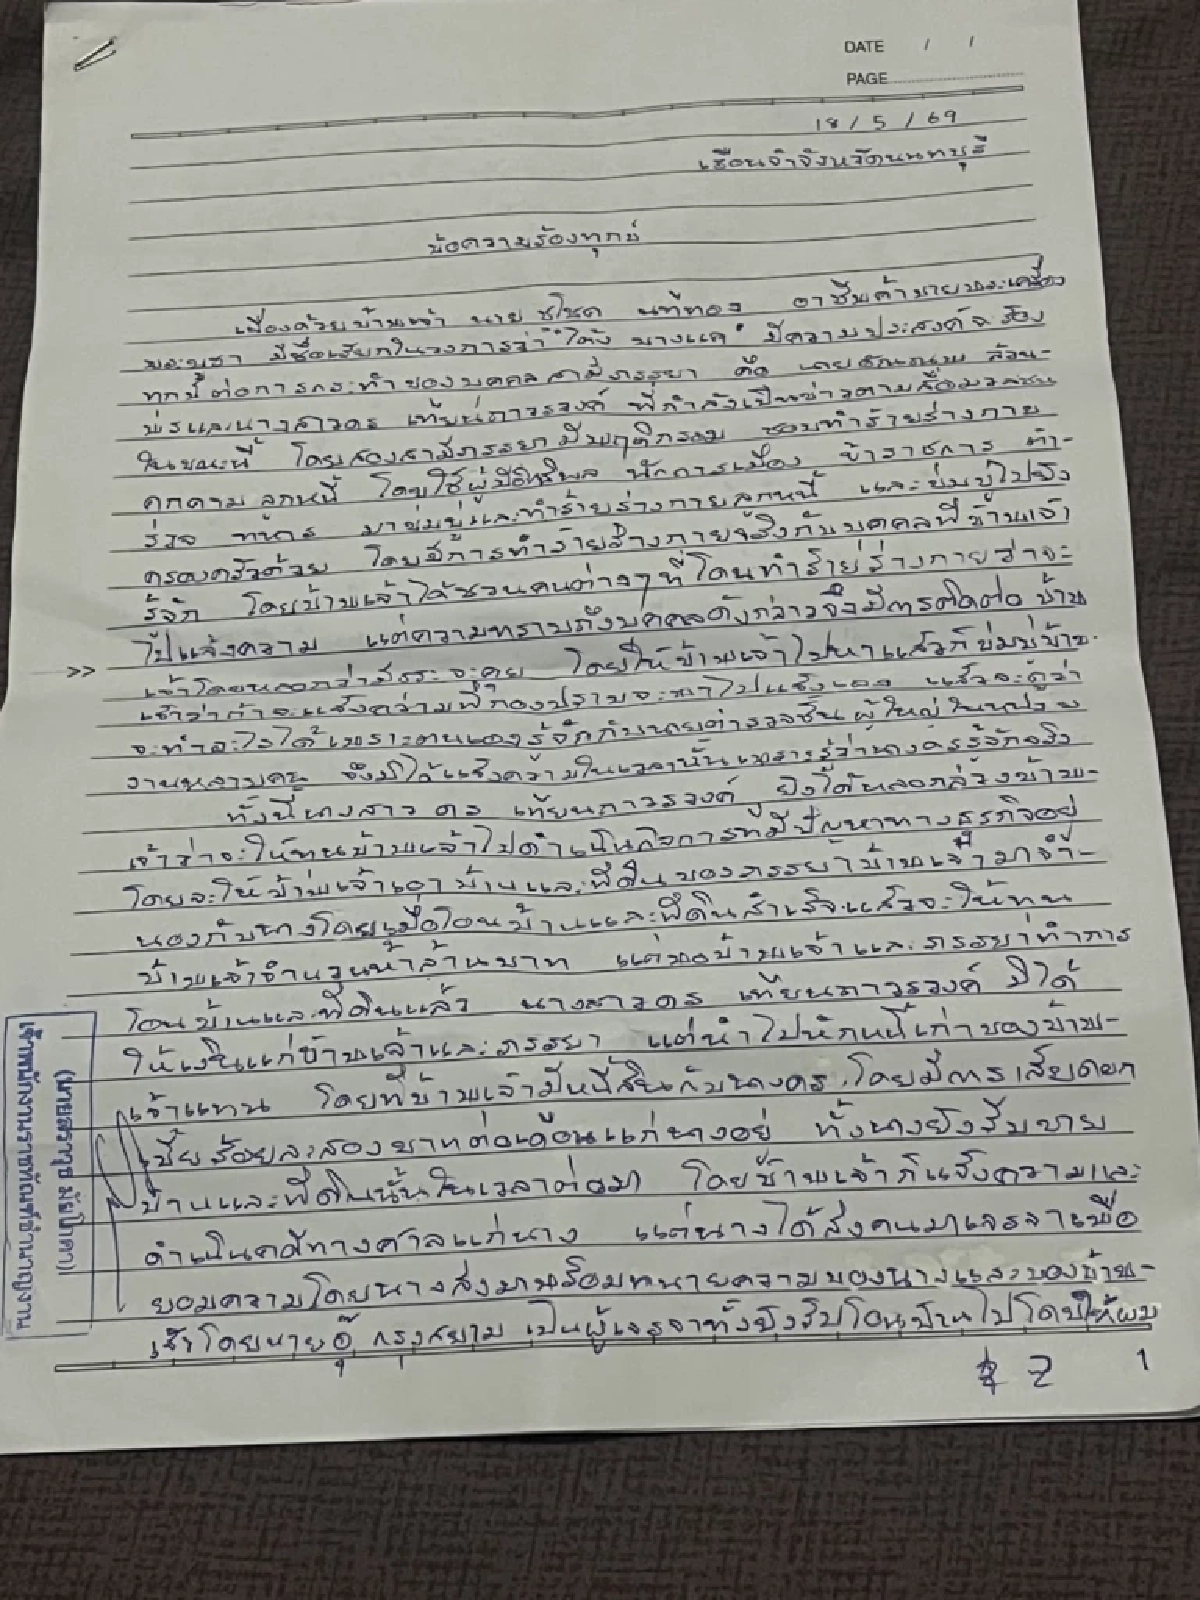 DATE / /
PAGE
18 / 5 / 69
เรือนจำจังหวัดนนทบุรี
ข้อความร้องทุกข์
เนื่องด้วยข้าพเจ้า นาย โชต อาชีพค้าขายพระเครื่อง
พระบูชา มีชื่อเรียกในวงการว่า "โต้ง บางแค" มีความประสงค์จะร้อง
ทุกข์ต่อการกระทำของบุคคลสามีภรรยา คือ นาย ล้วน-
พรและนางสาวดร เทียนถาวรวงค์ ที่กำลังเป็นข่าวตามสื่อมวลชน
ในขณะนี้ โดยสองสามีภรรยามีพฤติกรรม ชอบทำร้ายร่างกาย
คุกคามลูกหนี้ โดยใช้ผู้มีอิทธิพล นักการเมือง ข้าราชการ ตำ-
รวจ ทหาร มาข่มขู่และทำร้ายร่างกายลูกหนี้ และข่มขู่ไปยัง
ครอบครัวด้วย โดยมีการทำร้ายร่างกายจริงกับบุคคลที่ข้าพเจ้า
รู้จัก โดยข้าพเจ้าได้ชวนคนต่างๆที่โดนทำร้ายร่างกายว่าจะ
ไปแจ้งความ แต่ความทราบถึงบุคคลดังกล่าวจึงมีการติดต่อข้าพ
>> เจ้าโดยหลอกว่ามีธุระจะคุย โดยให้ข้าพเจ้าไปหาแล้วก็ข่มขู่ข้าพ-
เจ้าว่าถ้าจะแจ้งความที่กองปราบจะพาไปแจ้งเอง แล้วจะดูว่า
จะทำอะไรได้เพราะตนเองรู้จักกับนายตำรวจชั้นผู้ใหญ่ในหน่วย
งานหลายคน จึงมิได้แจ้งความในเวลานั้นเพราะรู้ว่านางดรรู้จักจริง
ทั้งนี้นางสาว ดร เทียนถาวรวงค์ ยังได้หลอกลวงข้าพ-
เจ้าว่าจะให้ทุนข้าพเจ้าไปดำเนินกิจการที่มีปัญหาทางธุรกิจอยู่
โดยจะให้ข้าพเจ้าเอาบ้านและที่ดินของภรรยาข้าพเจ้ามาจำ-
นองกับนางโดยเมื่อโอนบ้านและที่ดินสำเร็จแล้วจะให้ทุน
ข้าพเจ้าจำนวนห้าล้านบาท แต่พอข้าพเจ้าและภรรยาทำการ
โอนบ้านและที่ดินแล้ว นางสาวดร เทียนถาวรวงค์ มิได้
ให้เงินแก่ข้าพเจ้าและภรรยา แต่นำไปหักหนี้เก่าของข้าพ-
เจ้าแทน โดยที่ข้าพเจ้ามีหนี้สินกับนางดร โดยมีการเสียดอก
เบี้ยร้อยละสองบาทต่อเดือนแก่นางอยู่ ทั้งนางยังรีบขาย
บ้านและที่ดินนั้นในเวลาต่อมา โดยข้าพเจ้าก็แจ้งความและ
ดำเนินคดีทางศาลแก่นาง แต่นางได้ส่งคนมาเจรจาเพื่อ
ยอมความโดยนางส่งมาพร้อมทนายความของนางและของข้าพ-
เจ้าโดยนายอุ๊ กรุงสยาม เป็นผู้เจรจาทั้งยังรีบโอนบ้านไปโดยให้ผม
2 1
เจ้าพนักงานราชทัณฑ์ชำนาญงาน